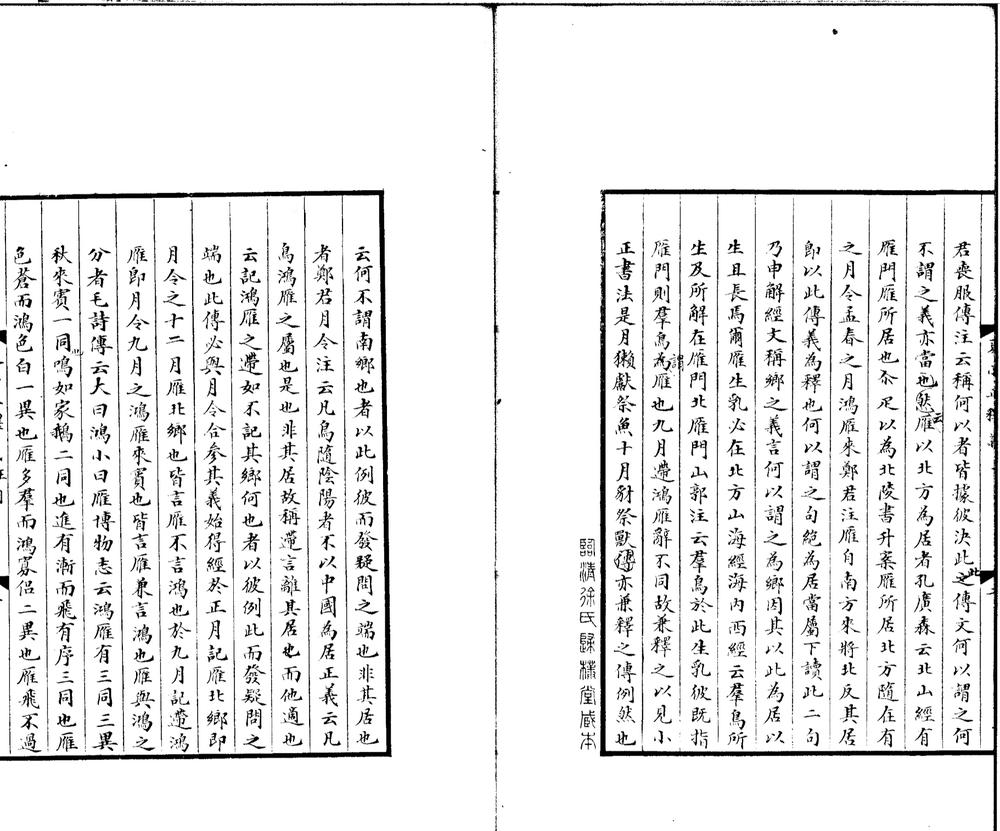 君喪服傳注云稱何以者皆據彼決此此之傳文何以謂之何
不謂之義亦當云也然雁以北方為居者孔廣森云北山經有
雁門雁所居也亦足以為北陵書升案雁所居北方隨在有
之月令孟春之月鴻雁來鄭君注雁自南方來將北反其居
即以此傳義為釋也何以謂之句絕為居當屬下讀此二句
乃申解經文稱鄉之義言何以謂之為鄉因其以此為居以
生且長焉爾雁生乳必在北方山海經海內西經云羣鳥所
生及所解在雁門北雁門山郭注云羣鳥於此生乳彼既指
雁門則羣鳥謂為雁也九月遰鴻雁辭不同故兼釋之以見小
正書法是月獺獻祭魚十月豺祭獸傳亦兼釋之傳例然也
臨清徐氏歸樸堂藏本
云何不謂南鄉也者以此例彼而發疑問之端也非其居也
者鄭君月令注云凡鳥隨陰陽者不以中國為居正義云凡
鳥鴻雁之屬也是也非其居故稱遰言離其居也而他適也
云記鴻雁之遰如不記其鄉何也者以彼例此而發疑問之
端也此傳必與月令合參其義始得經於正月記雁北鄉即
月令之十二月雁北鄉也皆言雁不言鴻也於九月記遰鴻
雁即月令九月之鴻雁來賓也皆言雁兼言鴻也雁與鴻之
分者毛詩傳云大曰鴻小曰雁博物志云鴻雁有三同三異
秋來賓一同也鳴如家鵝二同也進有漸而飛有序三同也雁
色蒼而鴻色白一異也雁多羣而鴻寡侶二異也雁飛不過